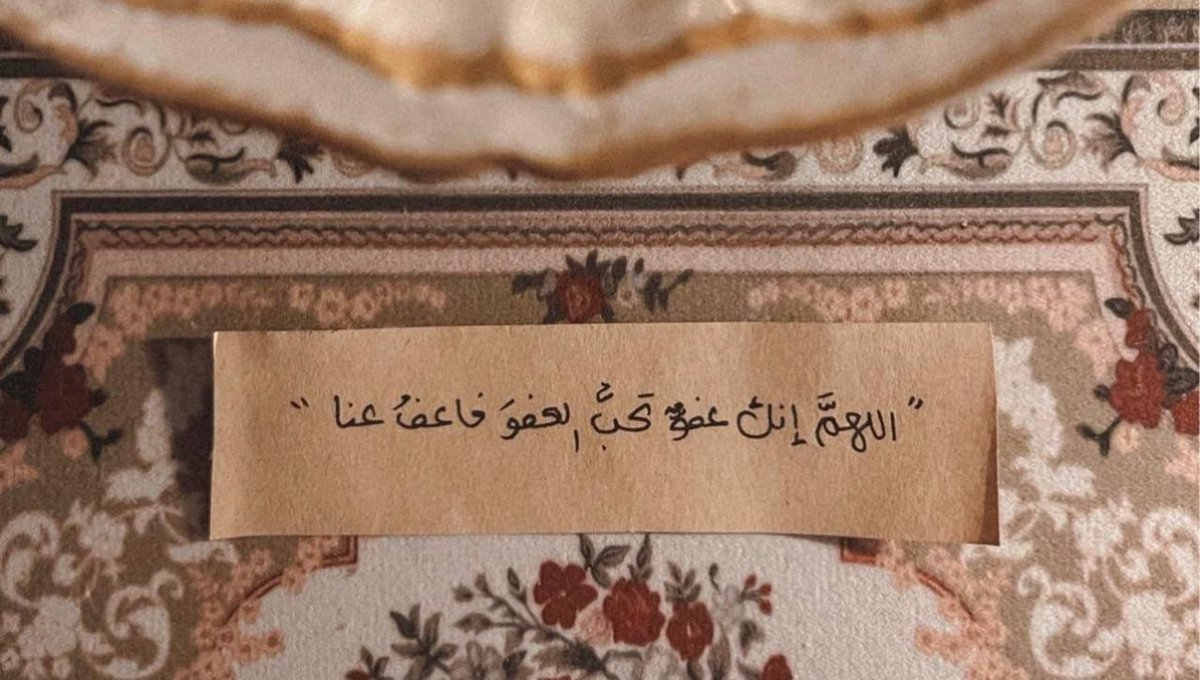 "اللهمَّ إنكَ عفوٌّ تحبُّ العفوَ فاعفُ عنا"